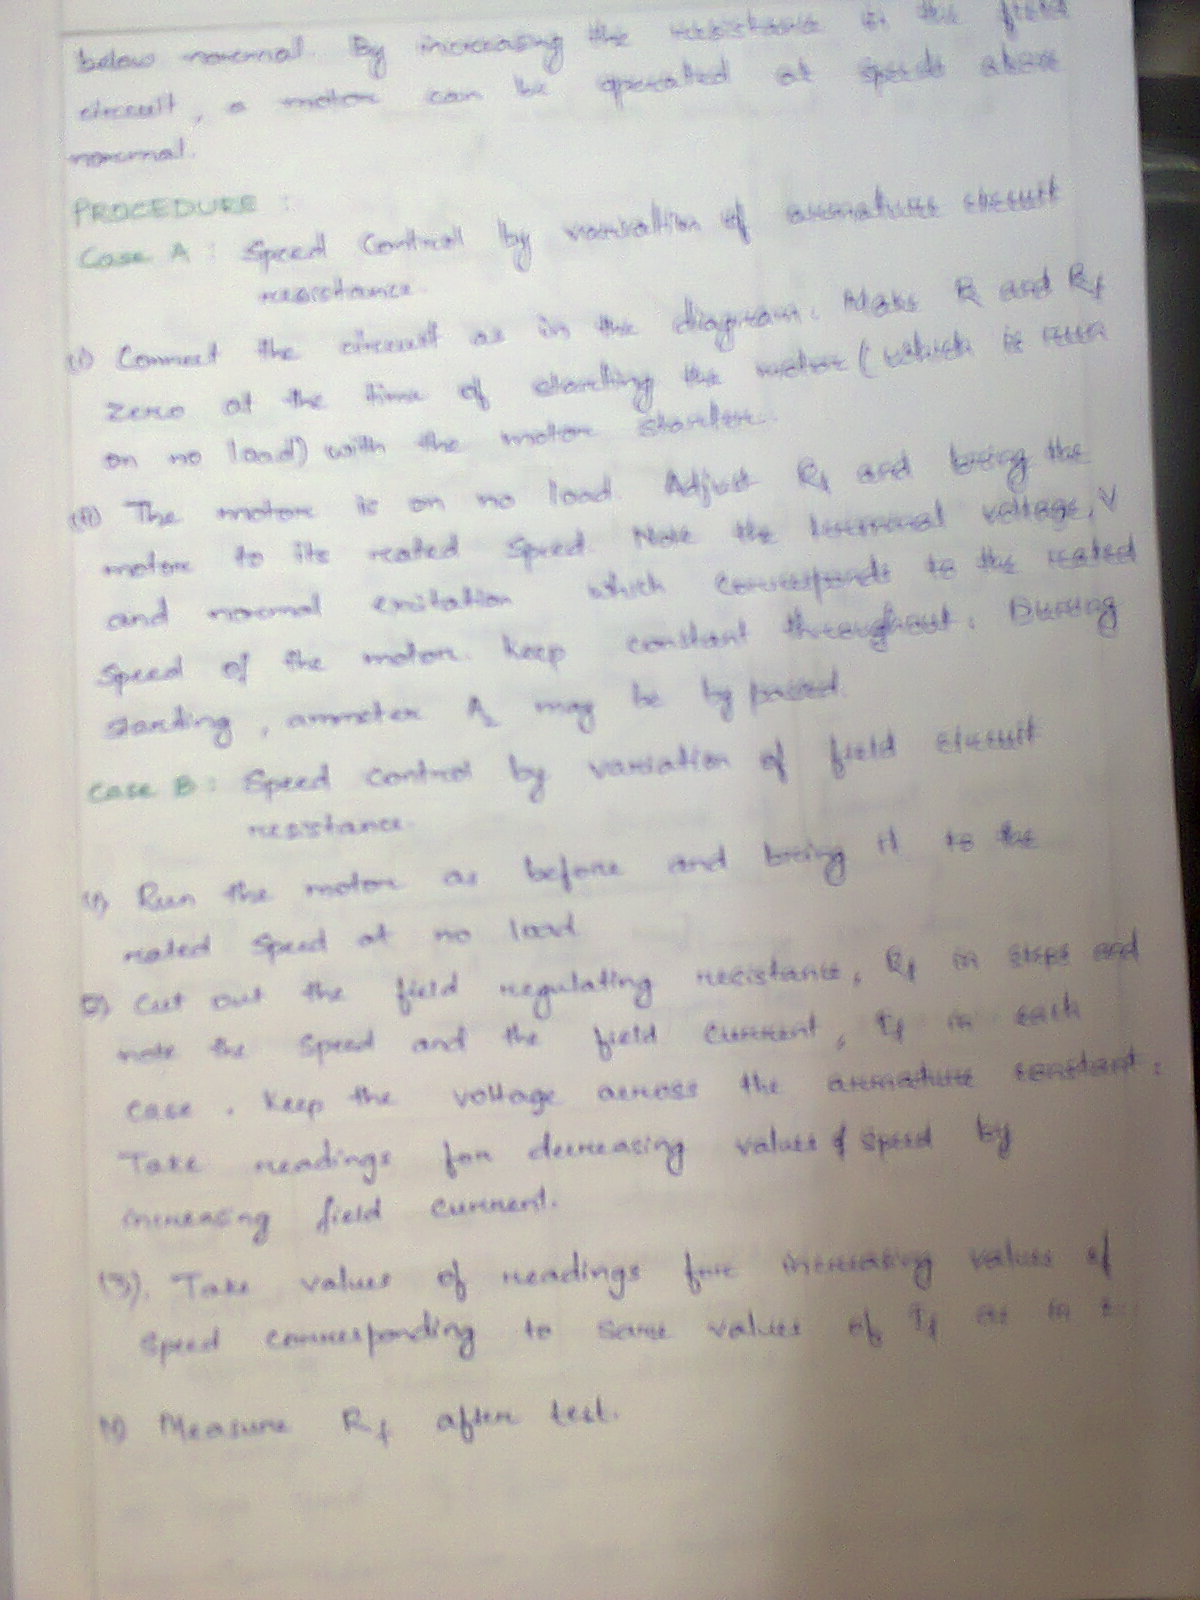 below normal. By increasing the resistance in the field
circuit, a motor can be operated at speeds above
normal.
PROCEDURE :
Case A : Speed Control by variation of armature circuit
resistance.
(i) Connect the circuit as in the diagram. Make R and Rf
zero at the time of starting the motor (which is run
on no load) with the motor starter.
(ii) The motor is on no load. Adjust Rf and bring the
motor to its rated speed. Note the terminal voltage, V
and normal exitation which corresponds to the rated
speed of the motor. Keep constant throughout. During
starting, ammeter A2 may be by passed.
Case B : Speed control by variation of field circuit
resistance.
(1) Run the motor as before and bring it to the
rated speed at no load
2) Cut out the field regulating resistance, Rf in steps and
note the speed and the field current, If in each
case. Keep the voltage across the armature constant.
Take readings for decreasing values of speed by
increasing field current.
(3). Take values of readings for increasing values of
speed corresponding to same values of If as in 2.
Measure Rf after test.